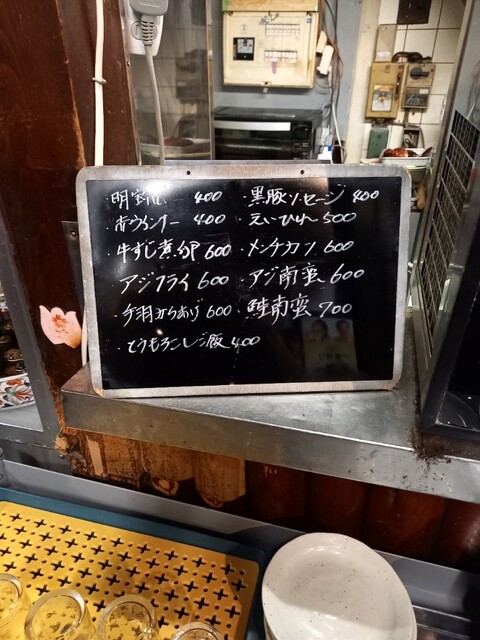 400
・黒豚ソーセージ 400
・赤ウインナー 400
・えいひれ 500
・牛すじ煮卵 600
・メンチカツ 600
・アジフライ 600
・アジ南蛮 600
・手羽からあげ 600
・鮭南蛮 700
・とうもろこしご飯 400